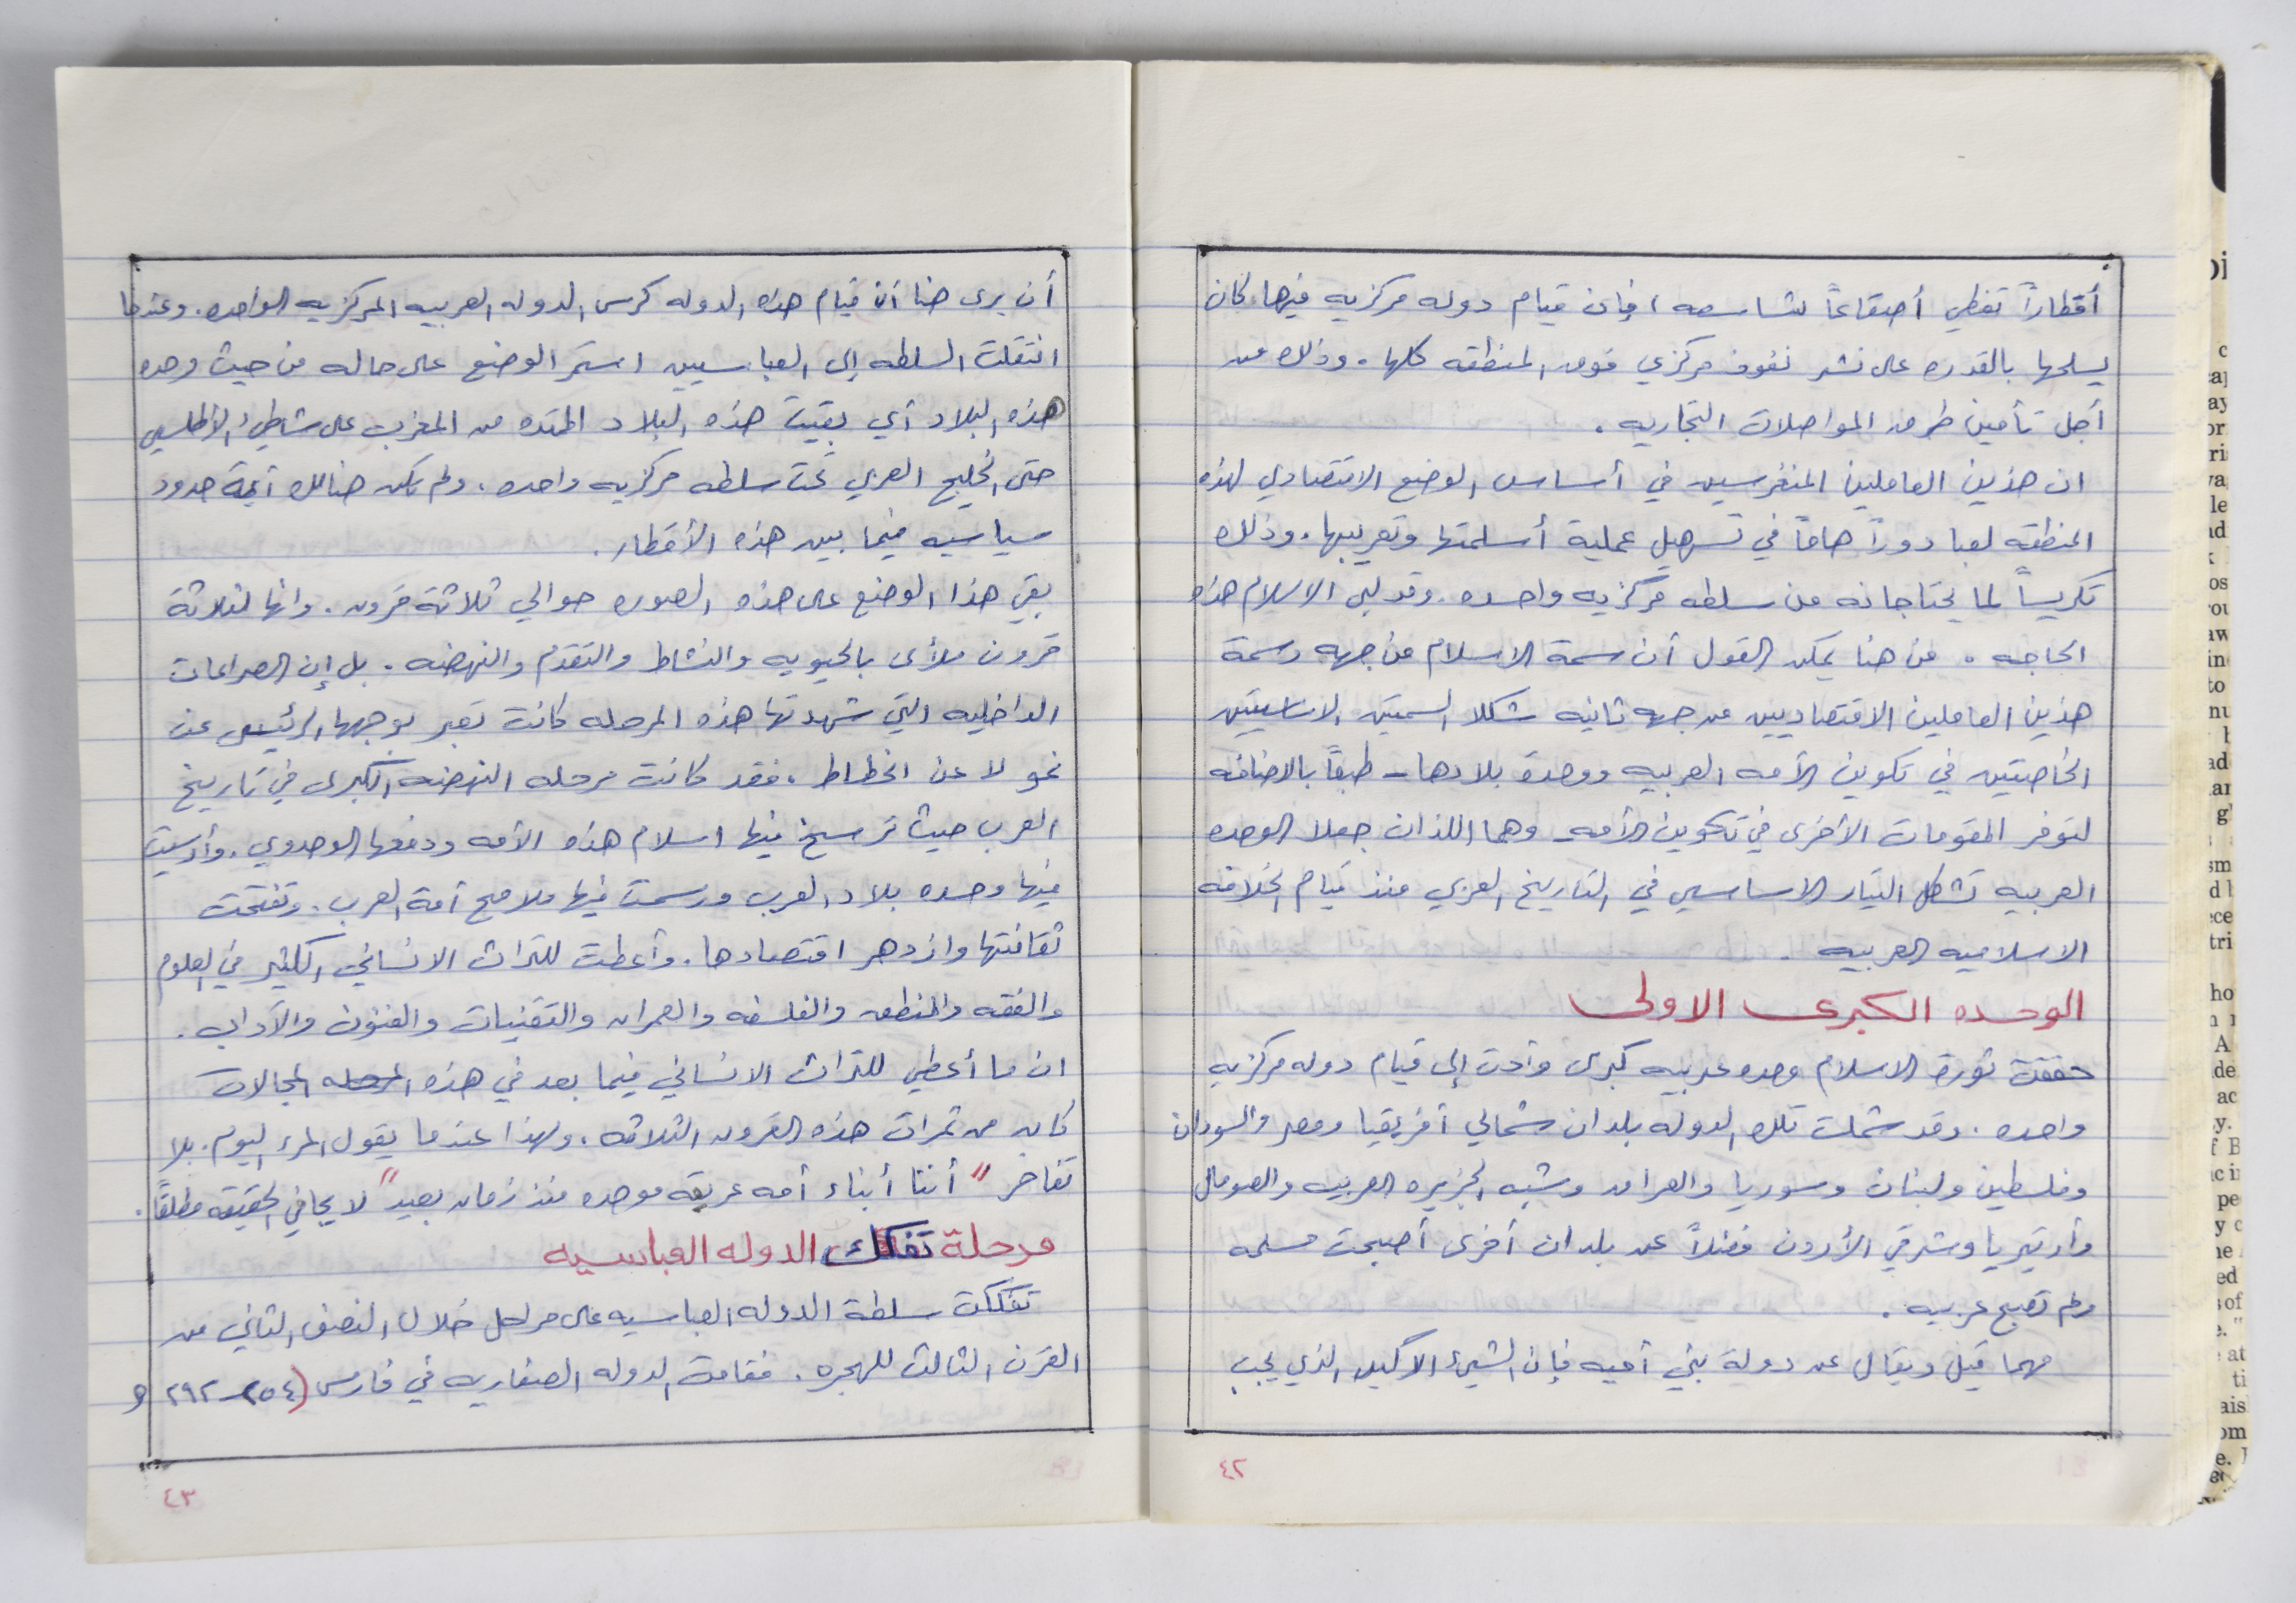 أقطاراً تغطي أصقاعاً شاسعه، فإن قيام دوله مركزيه فيها كان
يسلحها بالقدره على نشر نفوذ مركزي فوق المنطقه كلها. وذلك من
أجل تأمين طرق المواصلات التجاريه.
ان هذين العاملين المنغرسين في أساس الوضع الاقتصادي لهذه
المنطقه لعبا دوراً هاماً في تسهيل عملية أسلمتها وتعريبها. وذلك
تكريساً لما يحتاجانه من سلطه مركزيه واحده. وقد لبى الاسلام هذه
الحاجه. من هنا يمكن القول أن سمة الاسلام من جهه وسمة
هذين العاملين الاقتصاديين من جهه ثانيه شكلا السمتين الاساسيتين
الخاصيتين في تكوين الأمه العربيه ووحدة بلادها - طبعاً بالاضافه
لتوفر المقومات الأخرى في تكوين الأمه - وهما اللذان جعلا الوحده
العربيه تشكل التيار الاساسي في التاريخ العربي منذ قيام الخلافه
الاسلاميه العربيه.
الوحده الكبرى الاولى
حققت ثورة الاسلام وحده عربيه كبرى وأدت إلى قيام دوله مركزيه
واحده. وقد شملت تلك الدوله بلدان شمالي أفريقيا ومصر والسودان
وفلسطين ولبنان وسوريا والعراق وشبه الجزيره العربيه والصومال
وأرتيريا وشرقي الأردن فضلاً عن بلدان أخرى أصبحت مسلمه
ولم تصبح عربيه.
مهما قيل ويقال عن دولة بني أميه فإن الشيئ الاكيد الذي يجب
٤٢
أن يرى هنا أن قيام هذه الدوله كرس الدوله العربيه المركزيه الواحده. وعندما
انتقلت السلطه إلى العباسيين استمر الوضع على حاله من حيث وحده
هذه البلاد أي بقيت هذه البلاد الممتده من المغرب على شاطئ الأطلسي
حتى الخليج العربي تحت سلطه مركزيه واحده. ولم تكن هنالك أية حدود
سياسيه فيما بين هذه الأقطار.
بقي هذا الوضع على هذه الصوره حوالي ثلاثة قرون. وانها لثلاثة
قرون ملأى بالحيويه والنشاط والتقدم والنهضه. بل إن الصراعات
الداخليه التي شهدتها هذه المرحله كانت تعبر بوجهها الرئيسي عن
نمو لا عن انحطاط. فقد كانت مرحله النهضه الكبرى في تاريخ
العرب حيث ترسخ فيها اسلام هذه الأمه ودفعها الوحدوي. وأرسيت
فيها وحده بلاد العرب ورسمت فيها ملامح أمة العرب. وتفتحت
ثقافتها وازدهر اقتصادها. وأعطت للتراث الانساني الكثير في العلوم
والفقه والمنطق والفلسفه والعمران والتقنيات والفنون والآداب.
ان ما أعطي للتراث الانساني فيما بعد في هذه المرحله المجالات
كان من ثمرات هذه القرون الثلاثه. ولهذا عندما يقول المرء اليوم. بلا
تفاخر "أننا أبناء أمه عريقه موحده منذ زمان بعيد" لا يجافي الحقيقه مطلقاً.
مرحلة تفكك الدوله العباسيه
تفككت سلطة الدوله العباسيه على مراحل خلال النصف الثاني من
القرن الثالث للهجره. فقامت الدوله الصفاريه في فارس (٢٥٤-٢٩٢ و
٤٣